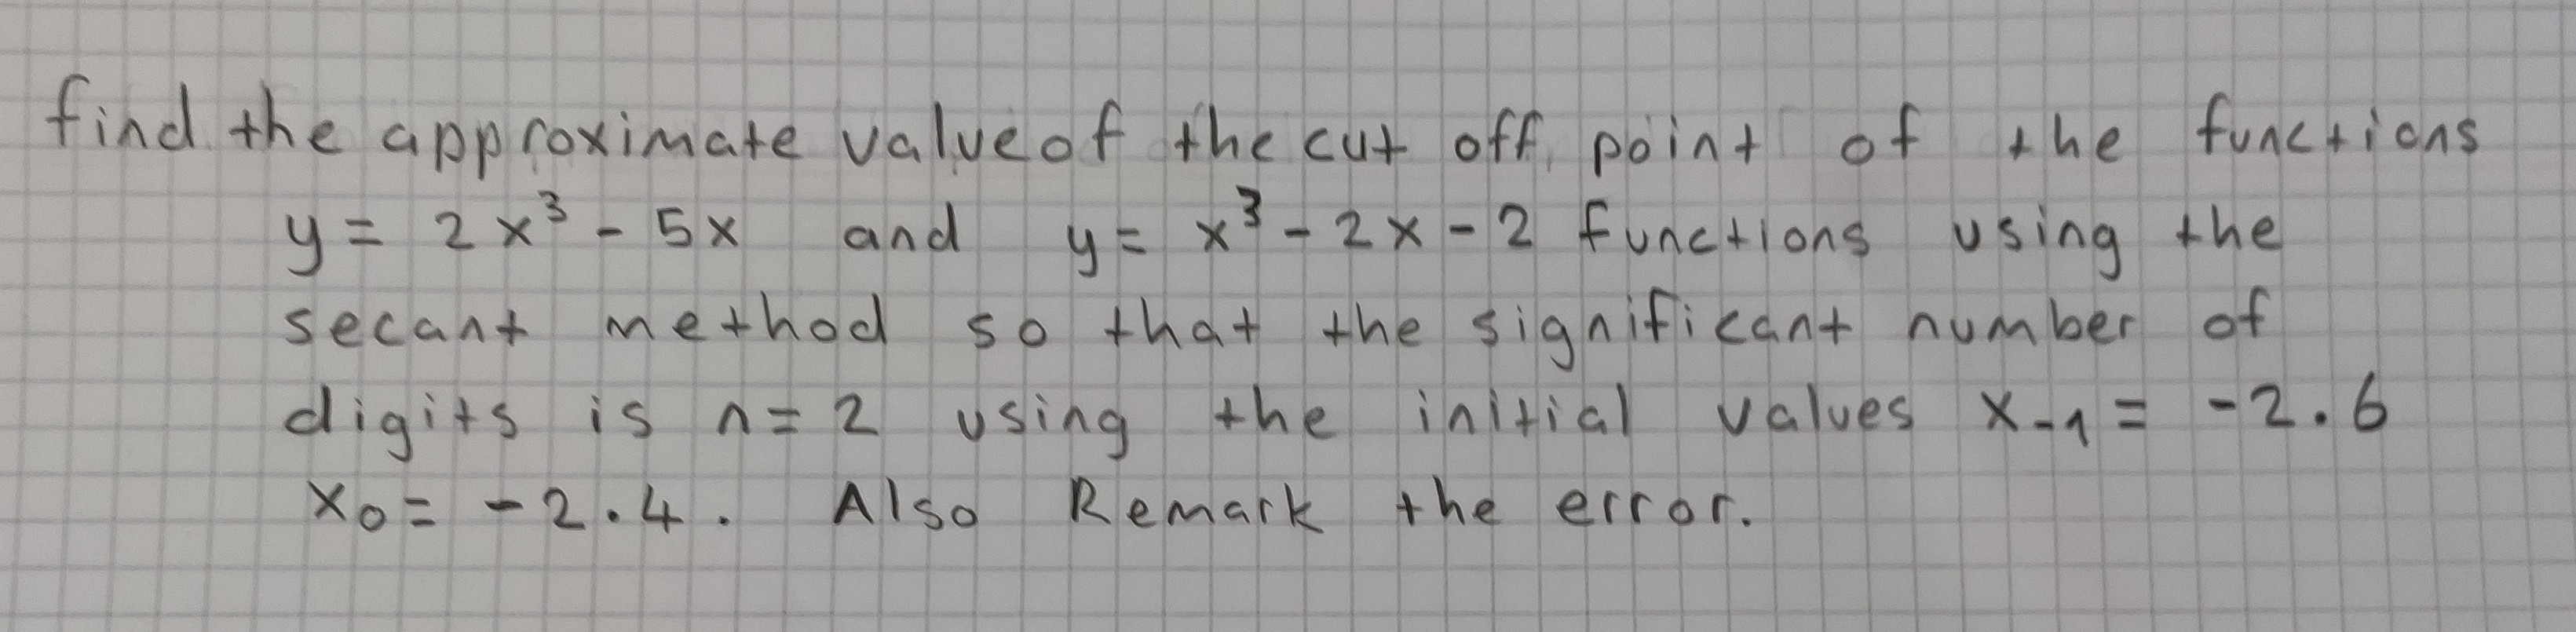 find the approximate value of the cut off point of the functions
y = 2x³ - 5x and y = x³ - 2x - 2 functions using the
secant method so that the significant number of
digits is n = 2 using the initial values x₋₁ = -2.6
x₀ = -2.4. Also Remark the error.